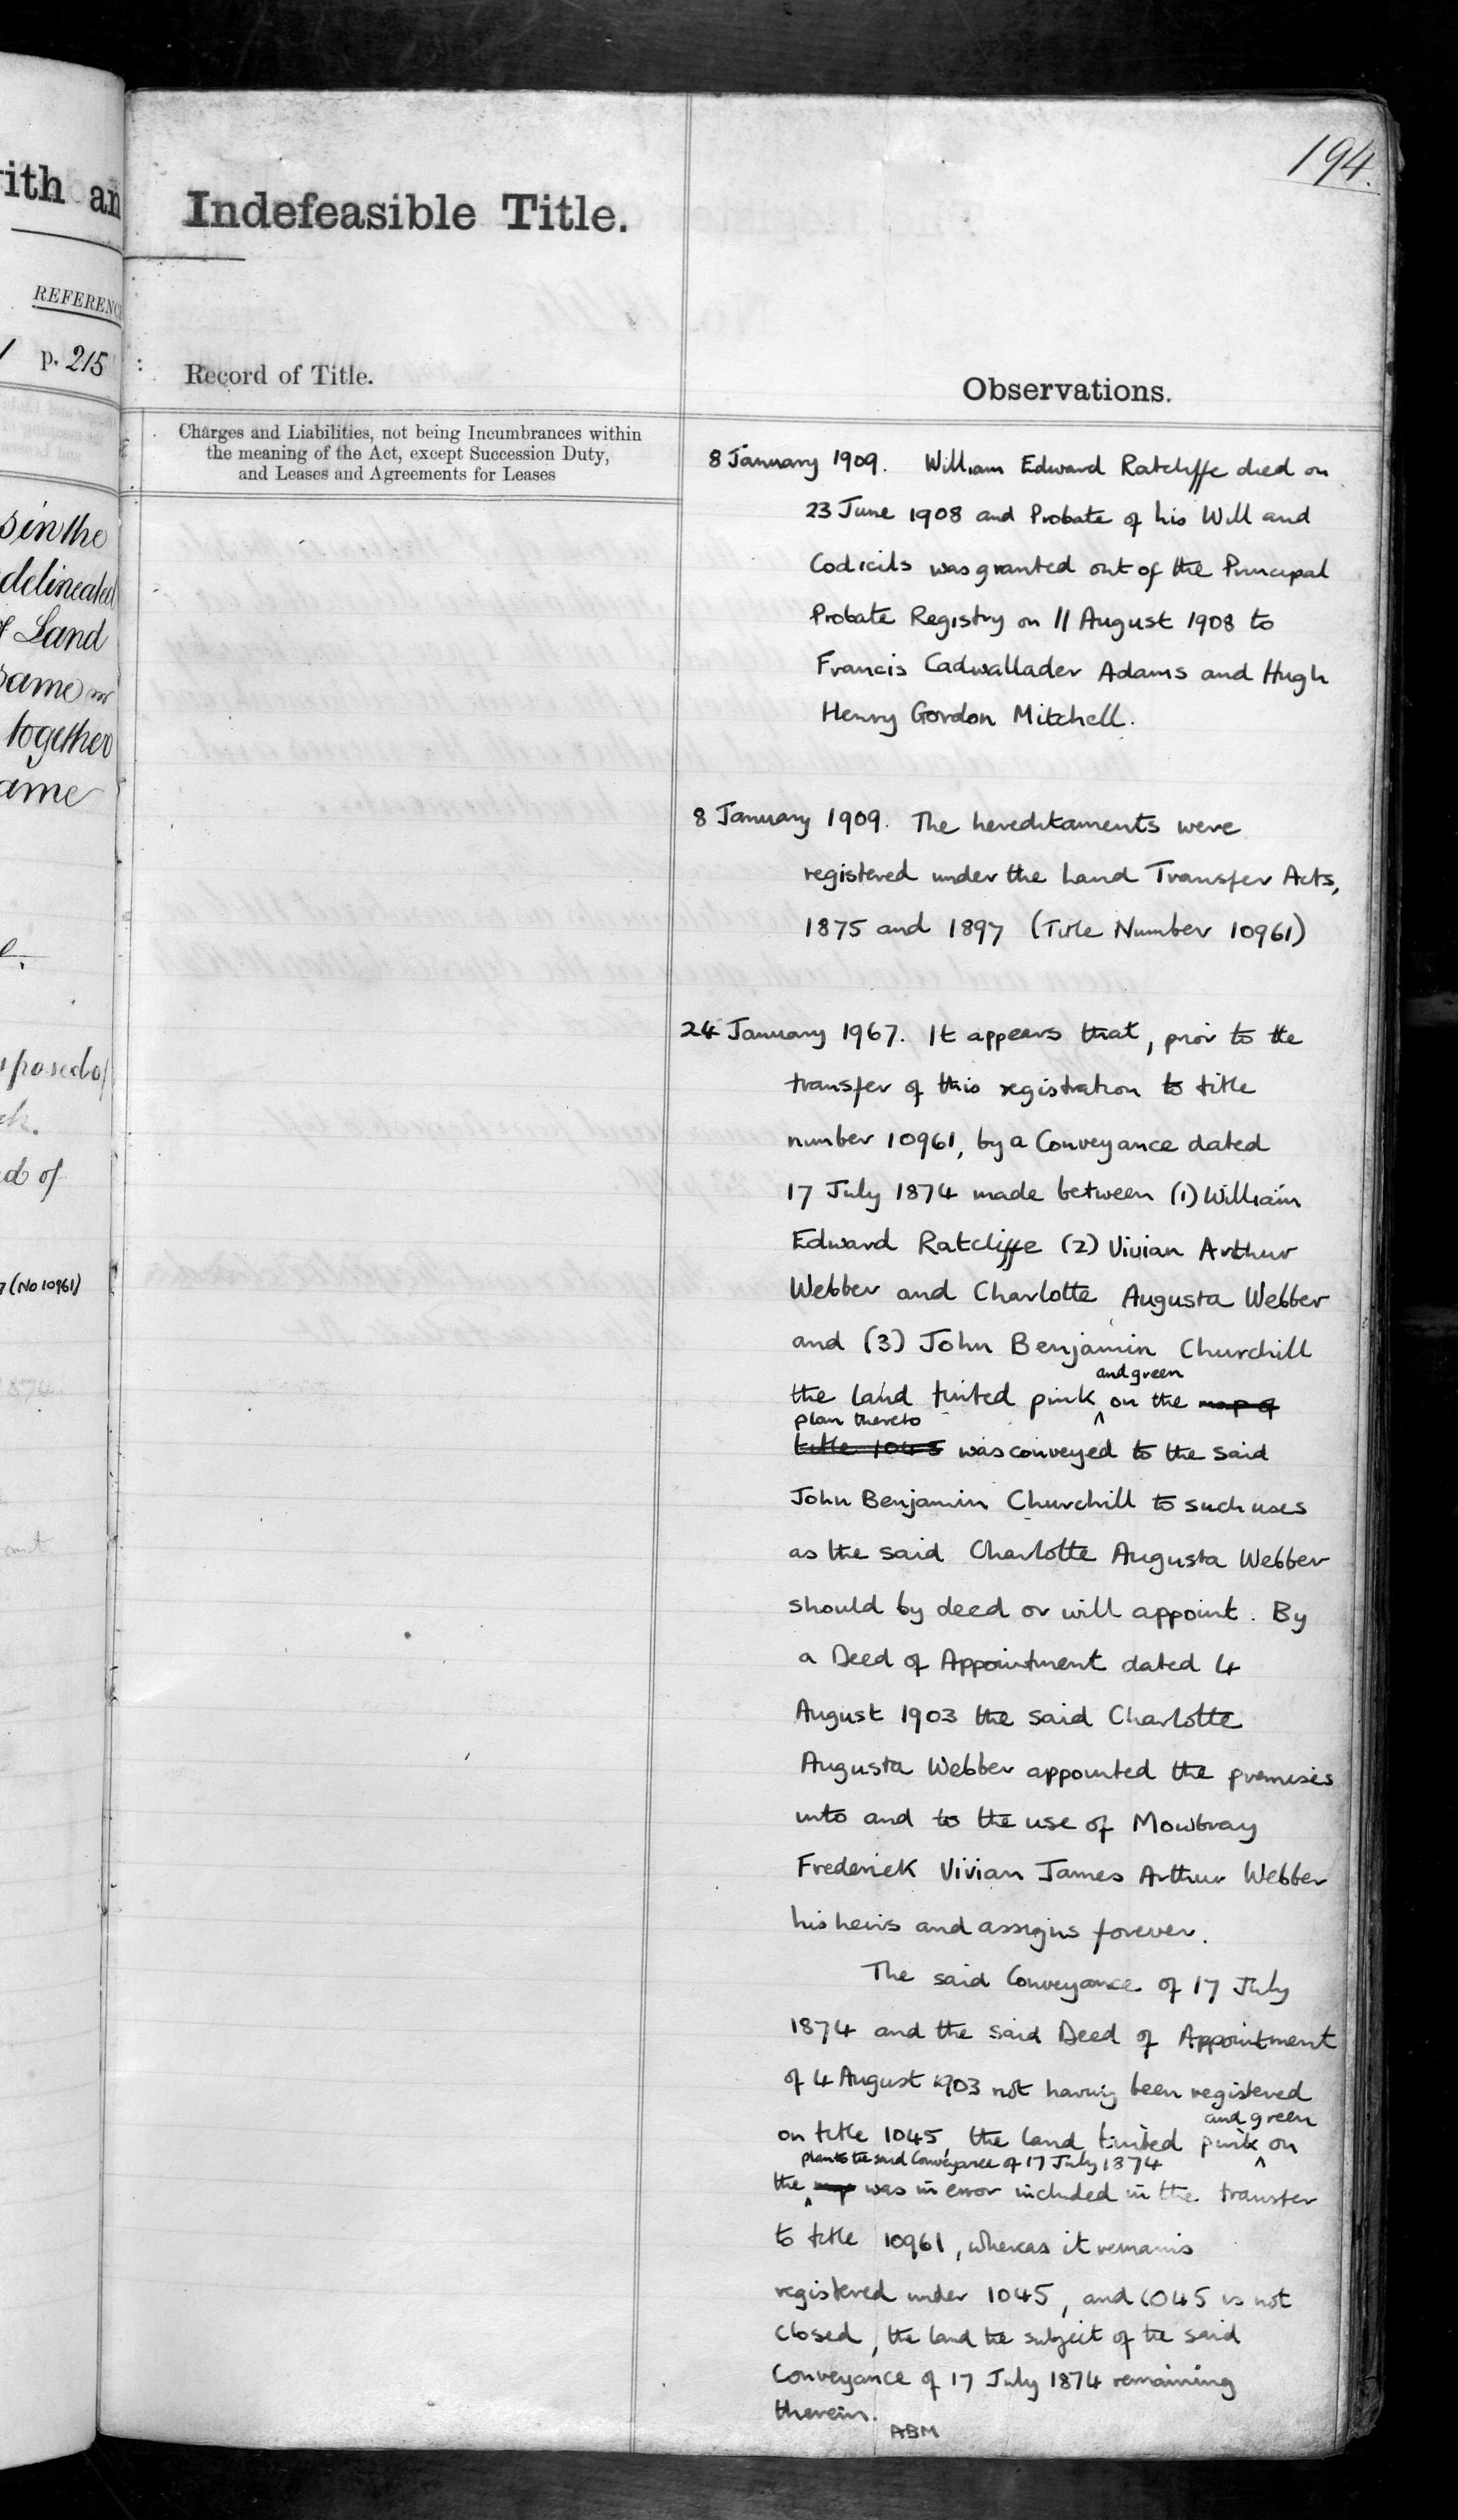 ith an
REFERENC
p. 215
s in the
delineated
of Land
same
together
ame
posed of
d of
(No 10961)
194.
Indefeasible Title.
Record of Title.
Charges and Liabilities, not being Incumbrances within
the meaning of the Act, except Succession Duty,
and Leases and Agreements for Leases
Observations.
8 January 1909. William Edward Ratcliffe died on
23 June 1908 and Probate of his Will and
Codicils was granted out of the Principal
Probate Registry on 11 August 1908 to
Francis Cadwallader Adams and Hugh
Henry Gordon Mitchell.
8 January 1909. The hereditaments were
registered under the Land Transfer Acts,
1875 and 1897 (Title Number 10961)
24 January 1967. It appears that, prior to the
transfer of this registration to title
number 10961, by a Conveyance dated
17 July 1874 made between (1) William
Edward Ratcliffe (2) Vivian Arthur
Webber and Charlotte Augusta Webber
and (3) John Benjamin Churchill
and green
the land tinted pink ^ on the map of
plan thereto
title 1045 was conveyed to the said
John Benjamin Churchill to such uses
as the said Charlotte Augusta Webber
should by deed or will appoint. By
a Deed of Appointment dated 4
August 1903 the said Charlotte
Augusta Webber appointed the premises
unto and to the use of Mowbray
Frederick Vivian James Arthur Webber
his heirs and assigns forever.
The said Conveyance of 17 July
1874 and the said Deed of Appointment
of 4 August 1903 not having been registered
and green
on title 1045, the land tinted pink ^ on
plan to the said Conveyance of 17 July 1874
the ^ map was in error included in the transfer
to title 10961, whereas it remains
registered under 1045, and 1045 is not
closed, the land the subject of the said
Conveyance of 17 July 1874 remaining
therein.
ABM